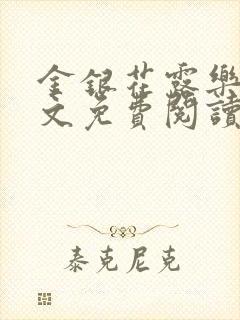 金銀花露樂
文免費閱讀
泰克尼克